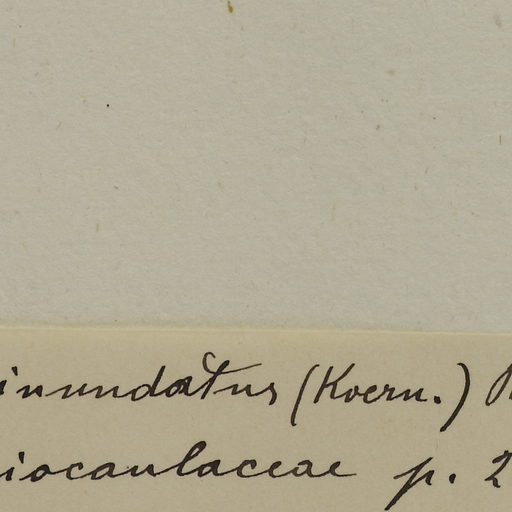 inundatus (Koern.)
iocaulaceae p. 2